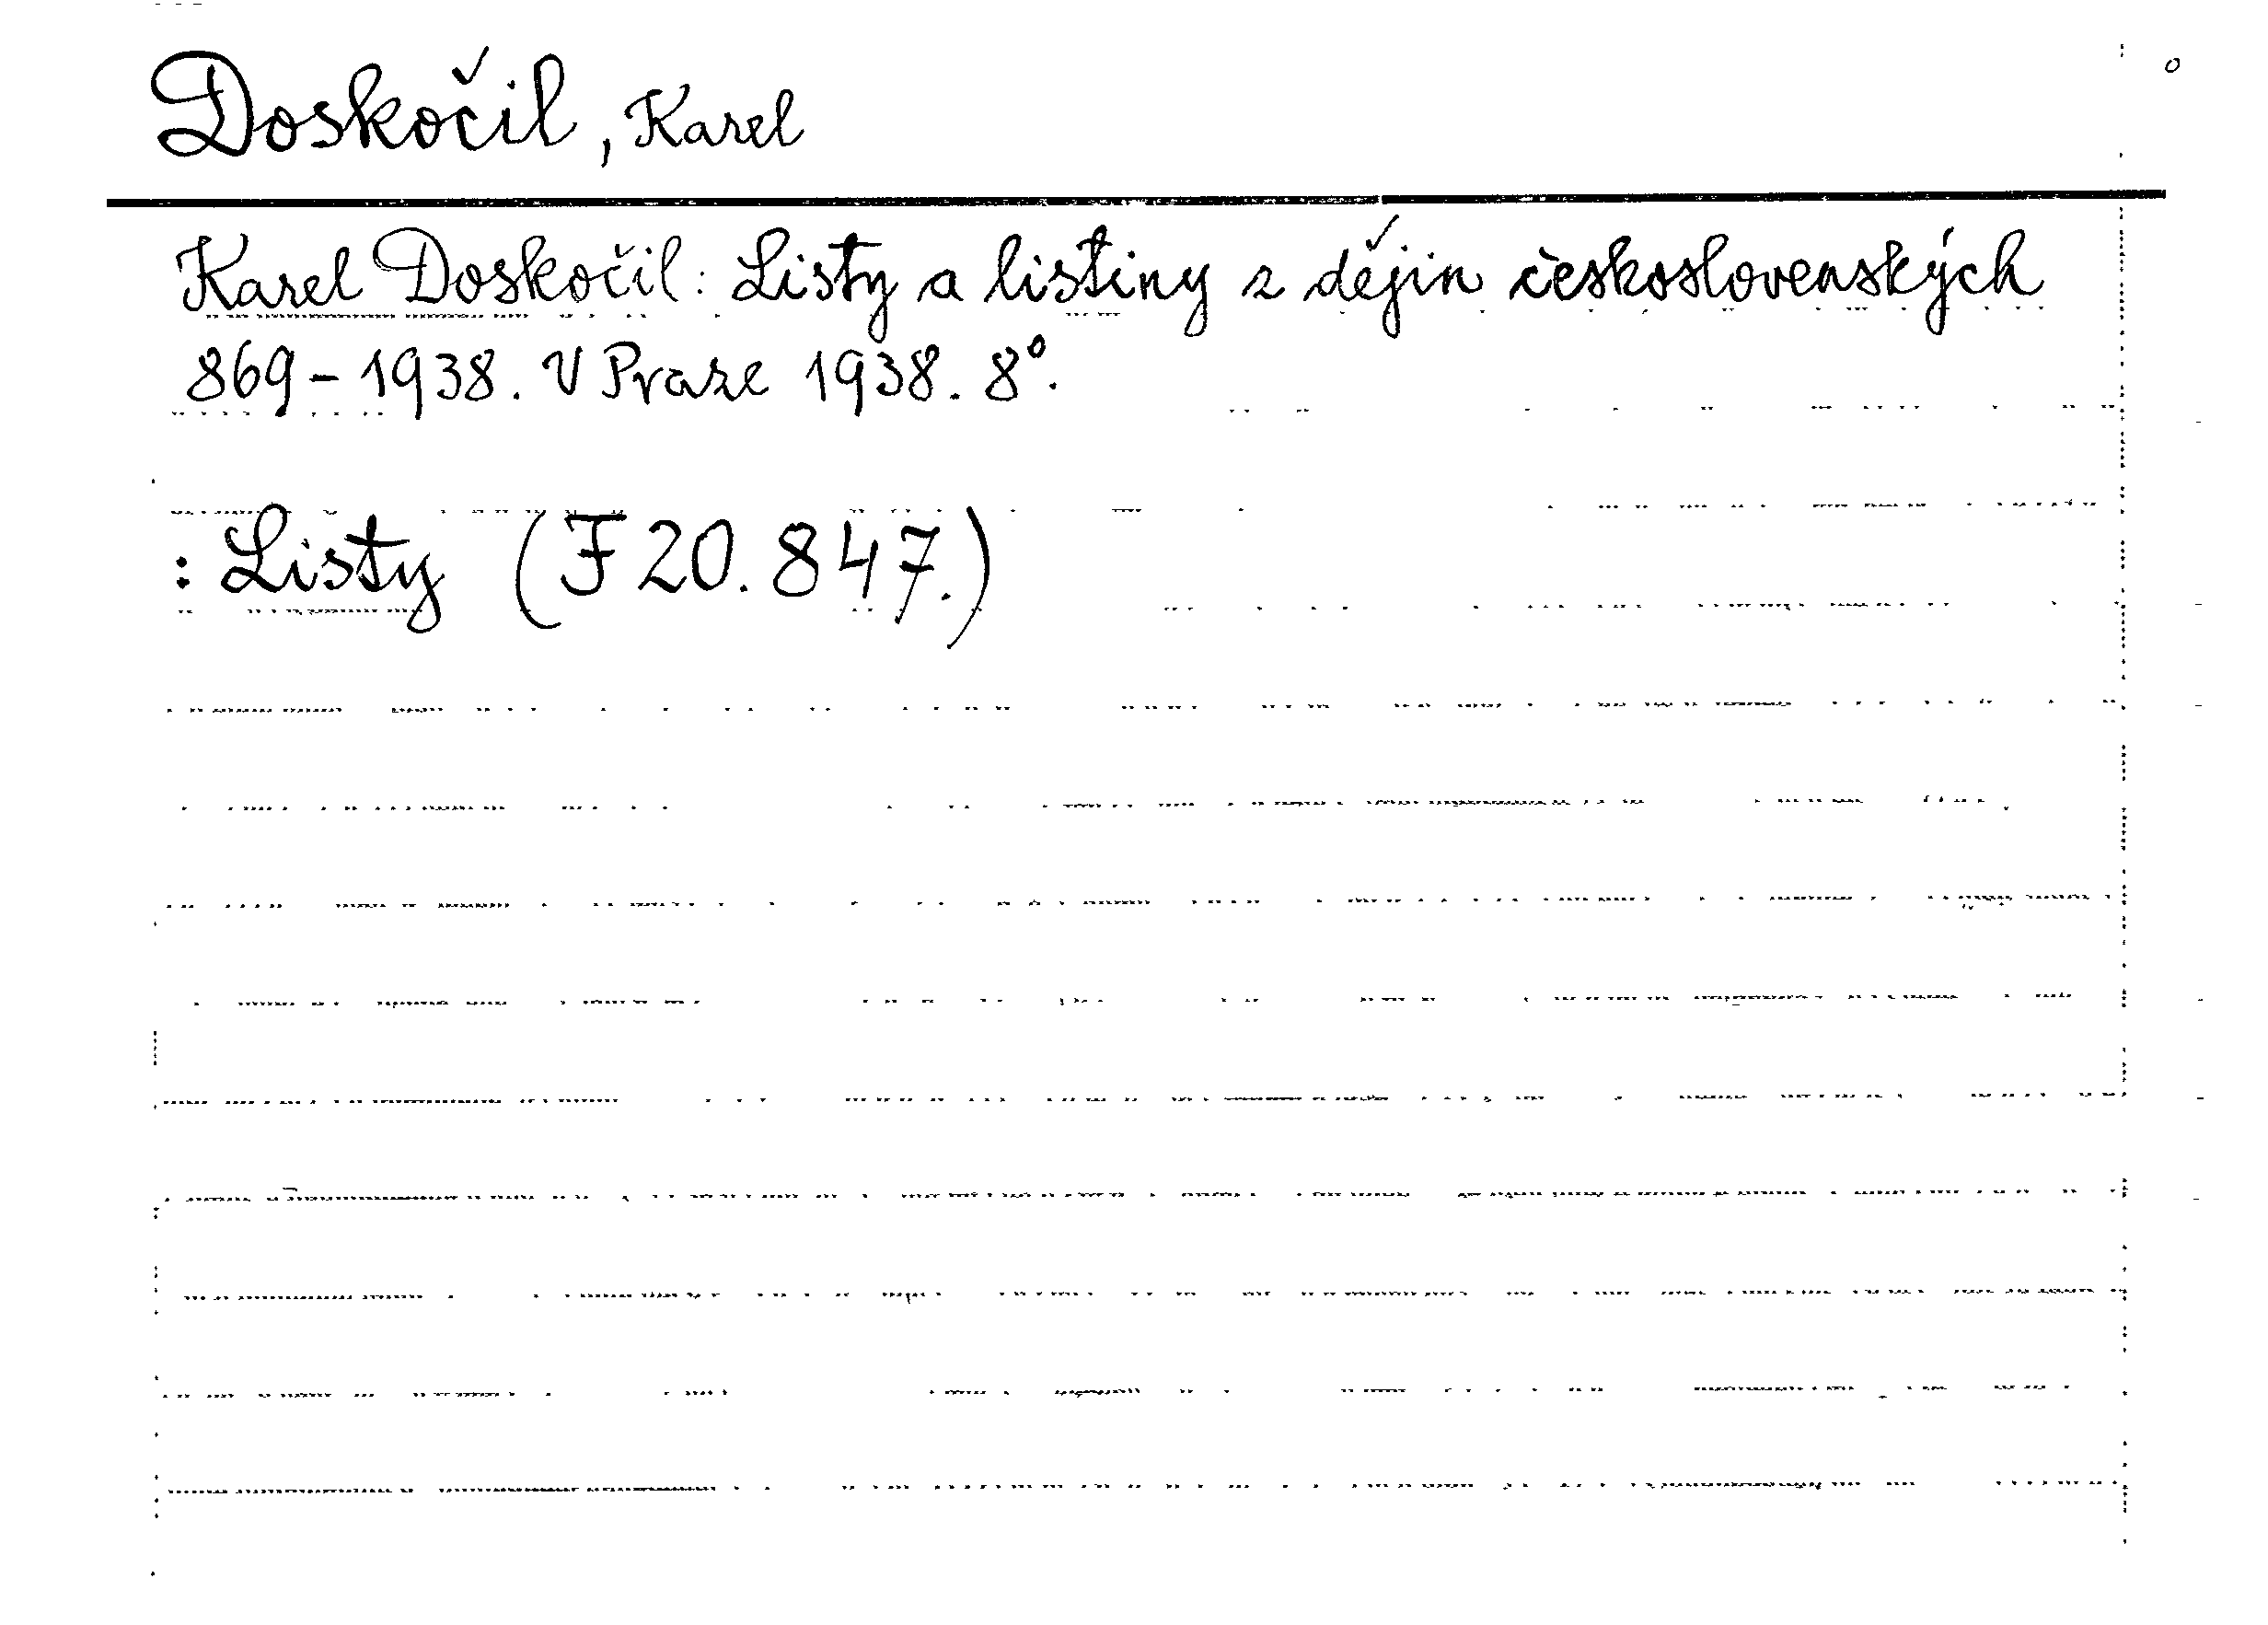 Doskočil, Karel
Karel Doskočil: Listy a listiny z dějin československých
869-1938. V Praze 1938. 8°.
: Listy (F 20.847.)